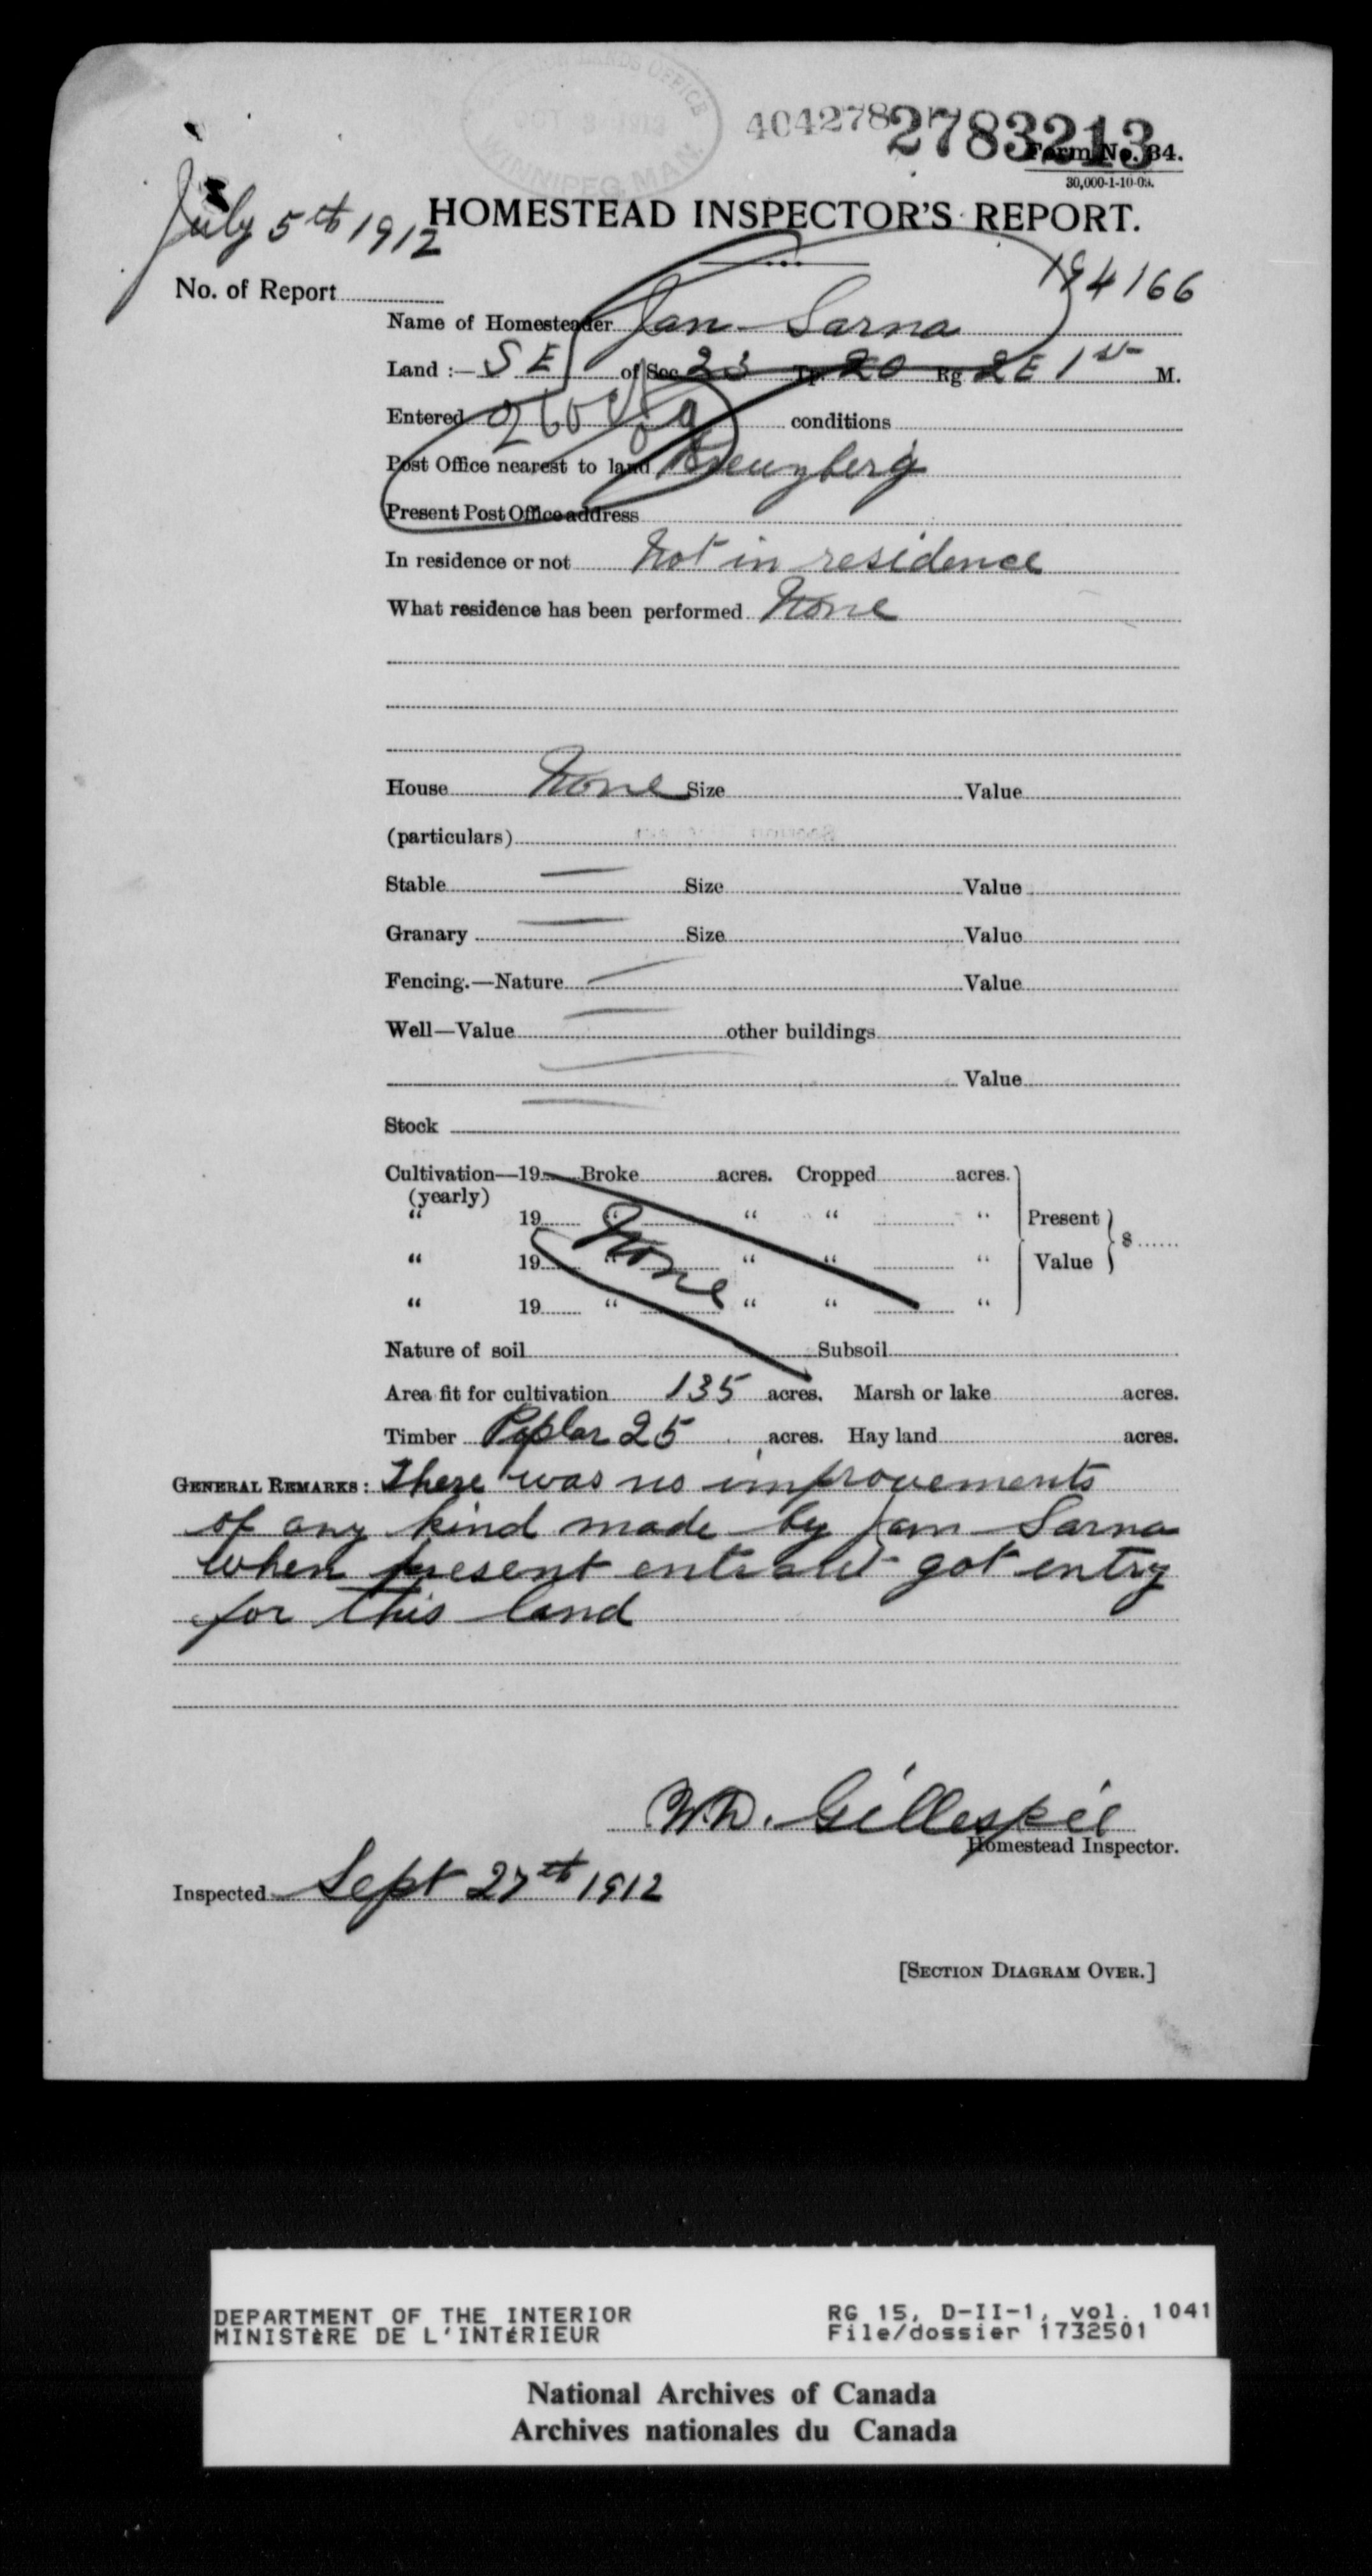 DOMINION LANDS OFFICE
OCT 3 1912
WINNIPEG, MAN.
4042782
2783213
Form No. 34.
30,000-1-10-09.
July 5th 1912
HOMESTEAD INSPECTOR'S REPORT.
194166
No. of Report
Name of Homesteader Jan Sarna
Land :— SE of Sec. 23 Tp. 20 Rg 2E 1st M.
Entered conditions
Post Office nearest to land Kreuzberg
Present Post Office address
In residence or not Not in residence
What residence has been performed None
House None Size Value
(particulars)
Stable — Size Value
Granary — Size Value
Fencing.—Nature — Value
Well—Value — other buildings
— Value
Stock —
Cultivation—19 Broke acres. Cropped acres.
(yearly)
“ 19 “ “ “ “ Present
“ 19 “ None “ “ “ Value $
“ 19 “ “ “ “
Nature of soil Subsoil
Area fit for cultivation 135 acres. Marsh or lake acres.
Timber Poplar 25 acres. Hay land acres.
GENERAL REMARKS: There was no improvements
of any kind made by Jan Sarna
when present entrant got entry
for this land
W.D. Gillespie
Homestead Inspector.
Inspected Sept 27th 1912
[SECTION DIAGRAM OVER.]
DEPARTMENT OF THE INTERIOR RG 15, D-II-1, vol. 1041
MINISTÈRE DE L'INTÉRIEUR File/dossier 1732501
National Archives of Canada
Archives nationales du Canada